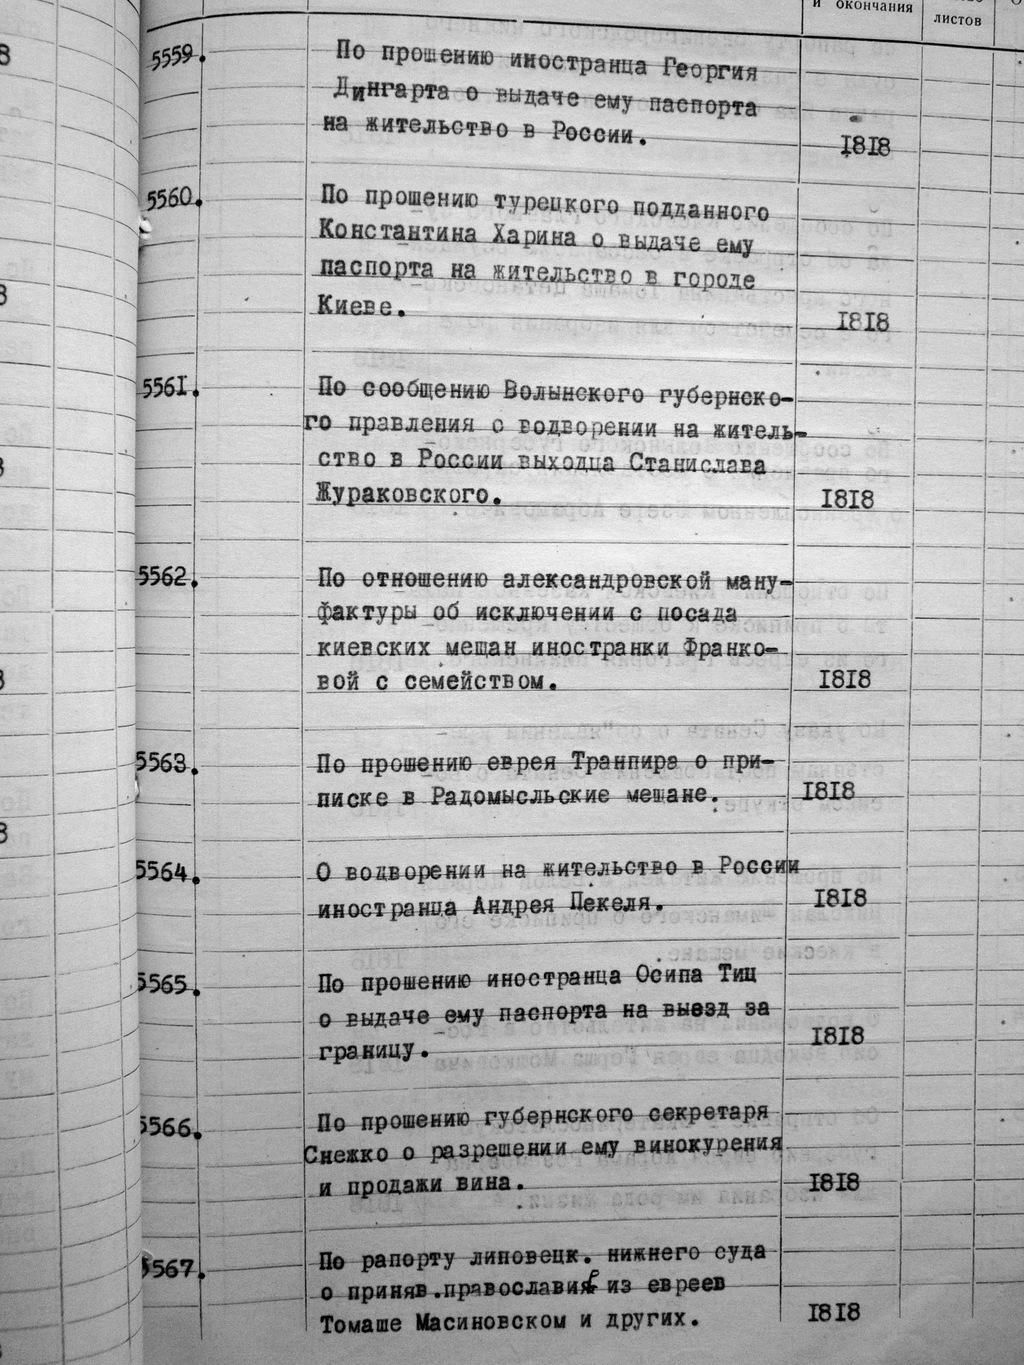 и окончания
листов
5559.
По прошению иностранца Георгия
Дингарта о выдаче ему паспорта
на жительство в России.
1818
5560.
По прошению турецкого подданного
Константина Харина о выдаче ему
паспорта на жительство в городе
Киеве.
1818
5561.
По сообщению Волынского губернско-
го правления о водворении на житель-
ство в России выходца Станислава
Жураковского.
1818
5562.
По отношению александровской ману-
фактуры об исключении с посада
киевских мещан иностранки Франко-
вой с семейством.
1818
5563.
По прошению еврея Транпира о при-
писке в Радомысльские мещане.
1818
5564.
О водворении на жительство в России
иностранца Андрея Пекеля.
1818
5565.
По прошению иностранца Осипа Тиц
о выдаче ему паспорта на выезд за
границу.
1818
5566.
По прошению губернского секретаря
Снежко о разрешении ему винокурения
и продажи вина.
1818
5567.
По рапорту липовецк. нижнего суда
о приняв.православия из евреев
Томаше Масиновском и других.
1818